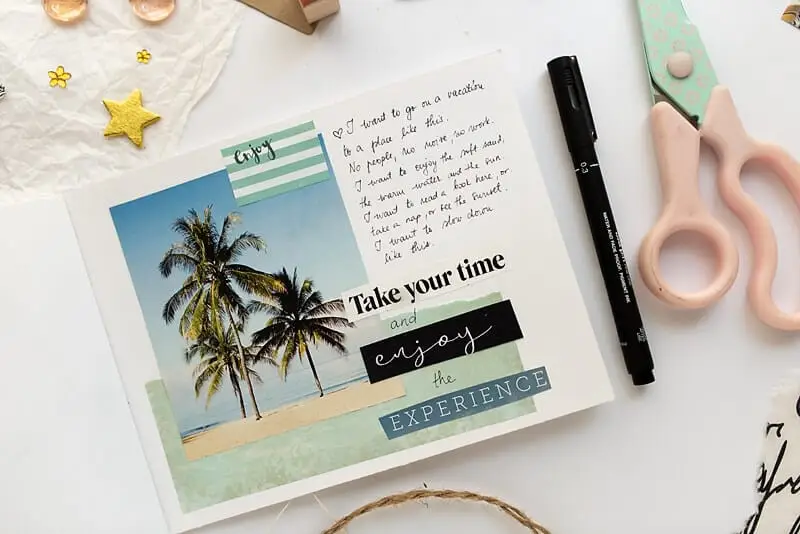 enjoy
I want to go on a vacation
to a place like this.
No people, no noise, no work.
I want to enjoy the soft sand,
the warm water and the sun.
I want to read a book here, or
take a nap, or see the sunset.
I want to slow down
like this.
Take your time
and
enjoy
the
EXPERIENCE
0.3
WATER AND FADE PROOF, PIGMENT INK